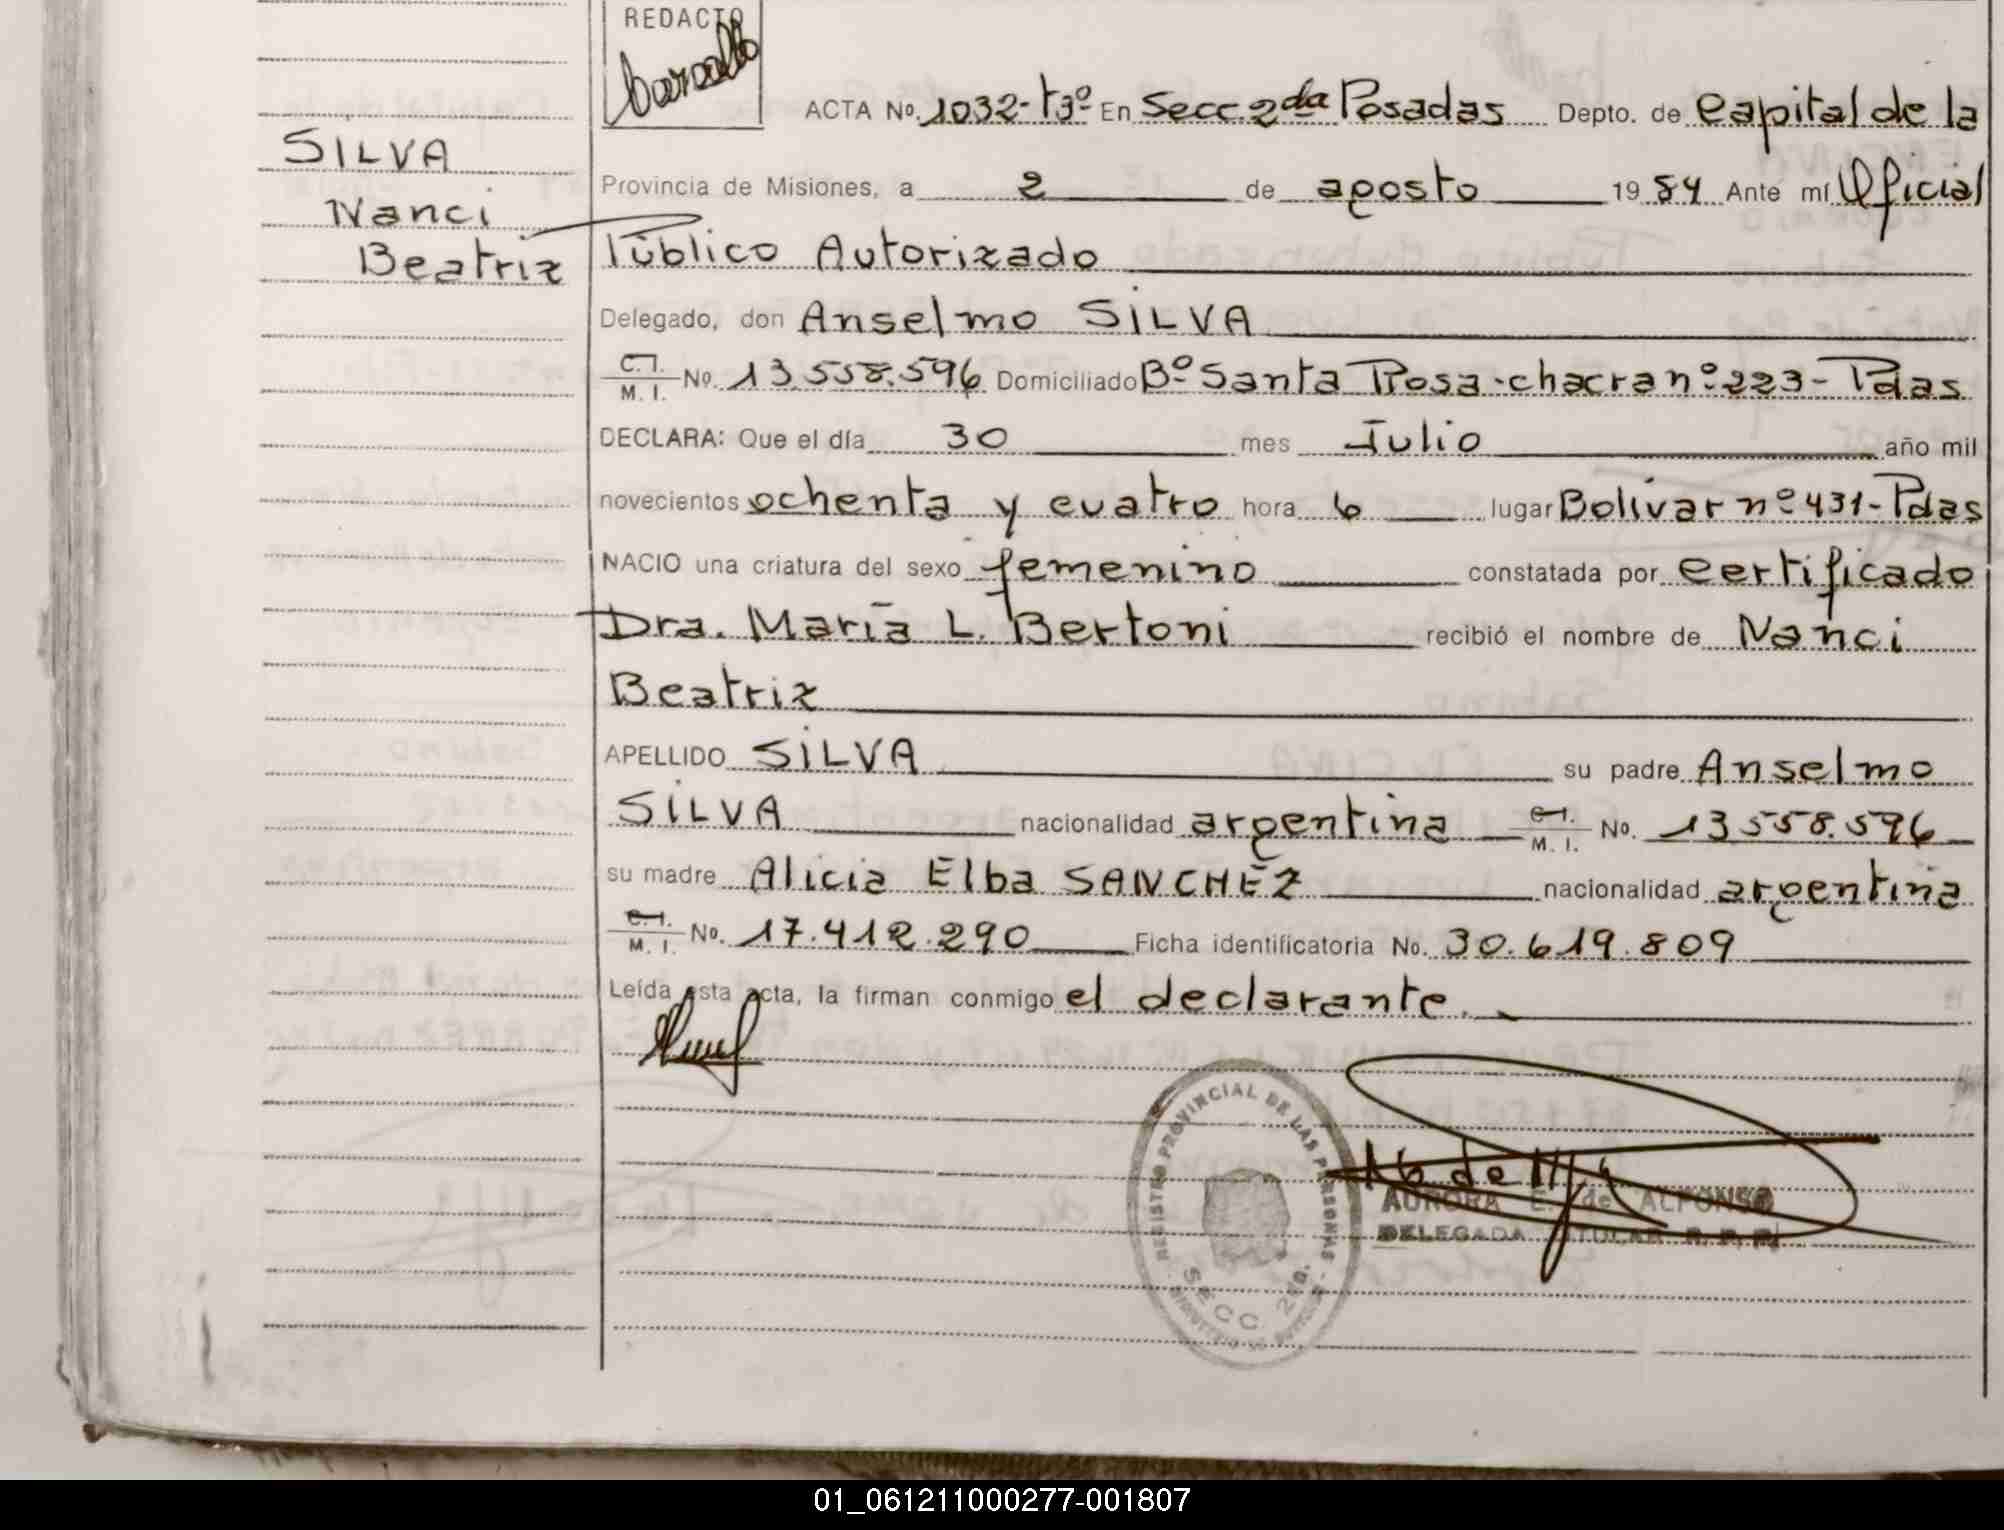 REDACTO
ACTA No. 1032-tº3º En Secc. 2da Posadas Depto. de Capital de la
SILVA
Nanci
Beatriz
Provincia de Misiones, a 2 de agosto 1984 Ante mí Oficial
Público Autorizado
Delegado, don Anselmo SILVA
C.I. M. I. No. 13.558.596 Domiciliado Bº Santa Rosa-chacra nº 223-Pdas
DECLARA: Que el día 30 mes Julio año mil
novecientos ochenta y cuatro hora 6 lugar Bolívar nº 431-Pdas
NACIO una criatura del sexo femenino constatada por certificado
Dra. María L. Bertoni recibió el nombre de Nanci
Beatriz
APELLIDO SILVA su padre Anselmo
SILVA nacionalidad argentina C.I. M. I. No. 13558.596
su madre Alicia Elba SANCHEZ nacionalidad argentina
C.I. M. I. No. 17.412.290 Ficha identificatoria No. 30.619.809
Leída esta acta, la firman conmigo el declarante.
REGISTRO PROVINCIAL DE LAS PERSONAS
SECC 2da.
AURORA E. de ALFONSO
DELEGADA TITULAR R. P. P.
01_061211000277-001807